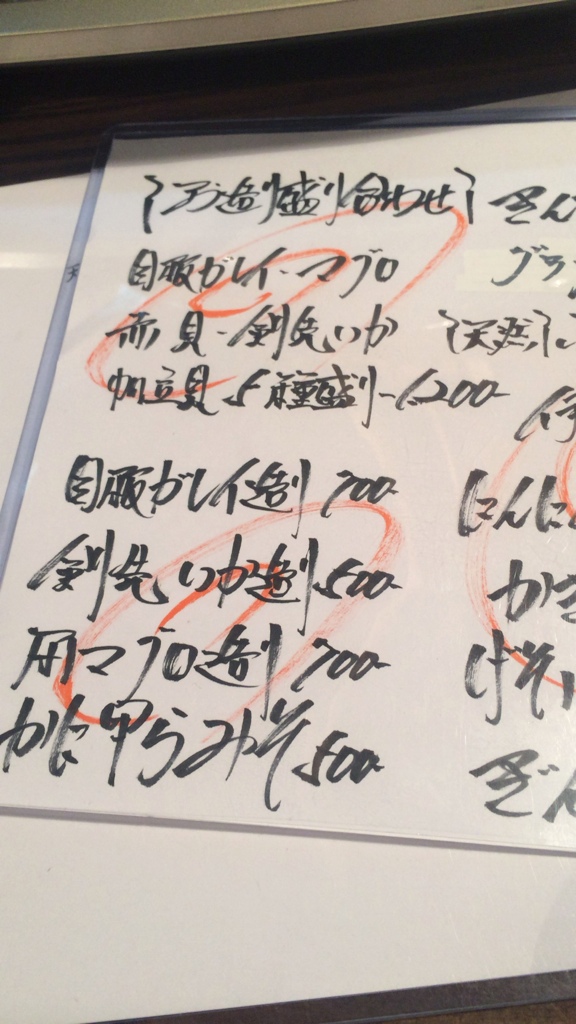 {お造り盛り合わせ}
目板ガレイ・マグロ
赤貝・剣先いか
帆立貝 5種盛り 1,200-
目板ガレイ造り 700-
剣先いか造り 500-
マグロ造り 700-
かに甲らみそ 500-
ぎん
{天然}
にんに
かき
げそ
ぎん